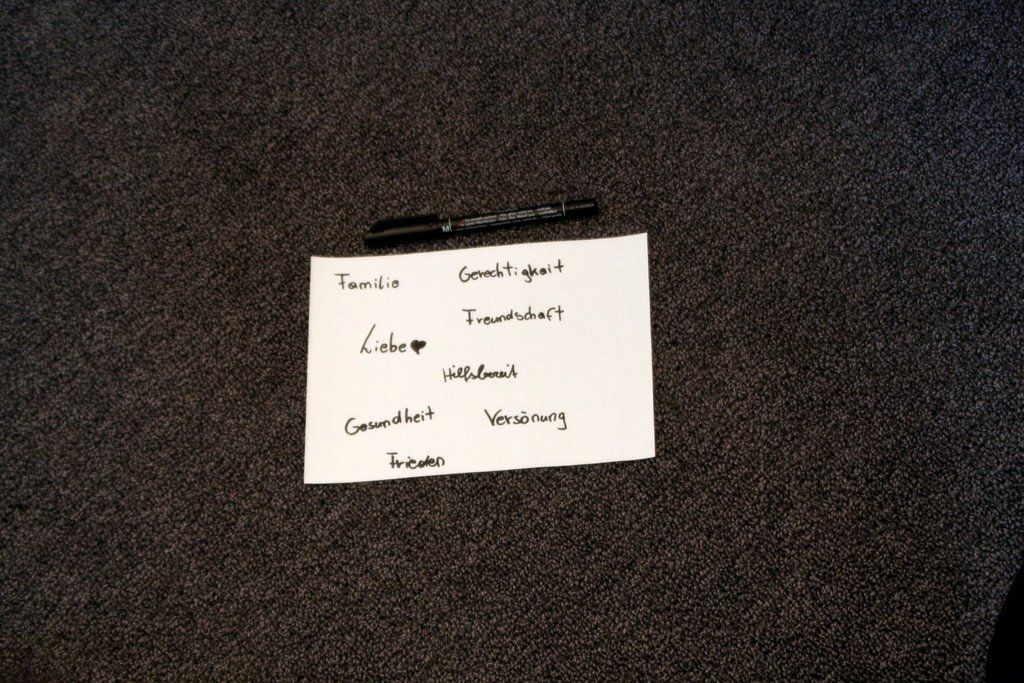 Familie
Gerechtigkeit
Freundschaft
Liebe
Hilfsbereit
Gesundheit
Versönung
Frieden
M